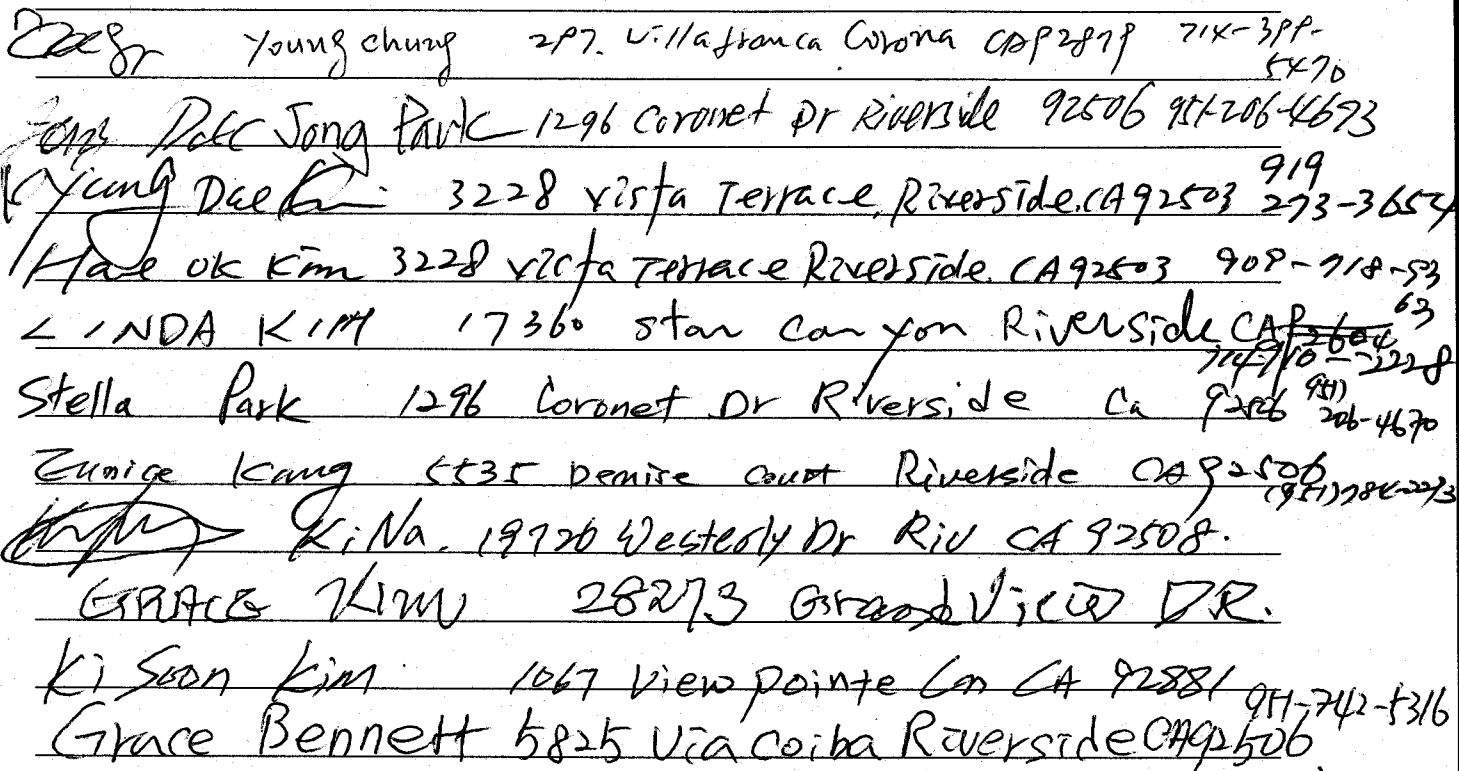 Young chung 297. Villafranca Corona CA 92879 714-399-
5470
Jong Park 1296 Coronet Dr Riverside 92506 951-206-4673
919
Young Dae Kim 3228 vista Terrace, Riverside, CA 92503 273-3654
Hae ok Kim 3228 vista Terrace Riverside. CA 92503 909-718-93
63
LINDA KIM 17360 star canyon Riverside CA 92504
714-910-2228
Stella Park 1296 Coronet Dr Riverside Ca 92506 951)
206-4670
Eunice Kang 5535 Denise Court Riverside CA 92506
(951)784-2273
Ki Na. 19726 Westerly Dr Riv CA 92508.
GRACE Kim 28273 Grand View DR.
Ki Soon Kim 1067 View pointe Ln CA 92881
951-742-5316
Grace Bennett 5825 Via Coiba Riverside CA 92506